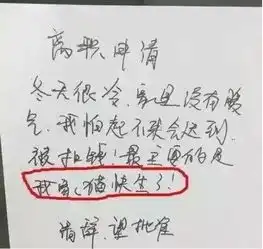 离职申请
冬天很冷,家里没有暖
气,我怕起不来会迟到,
被扣钱!最主要的是
我家猫快生了!
请辞,望批准